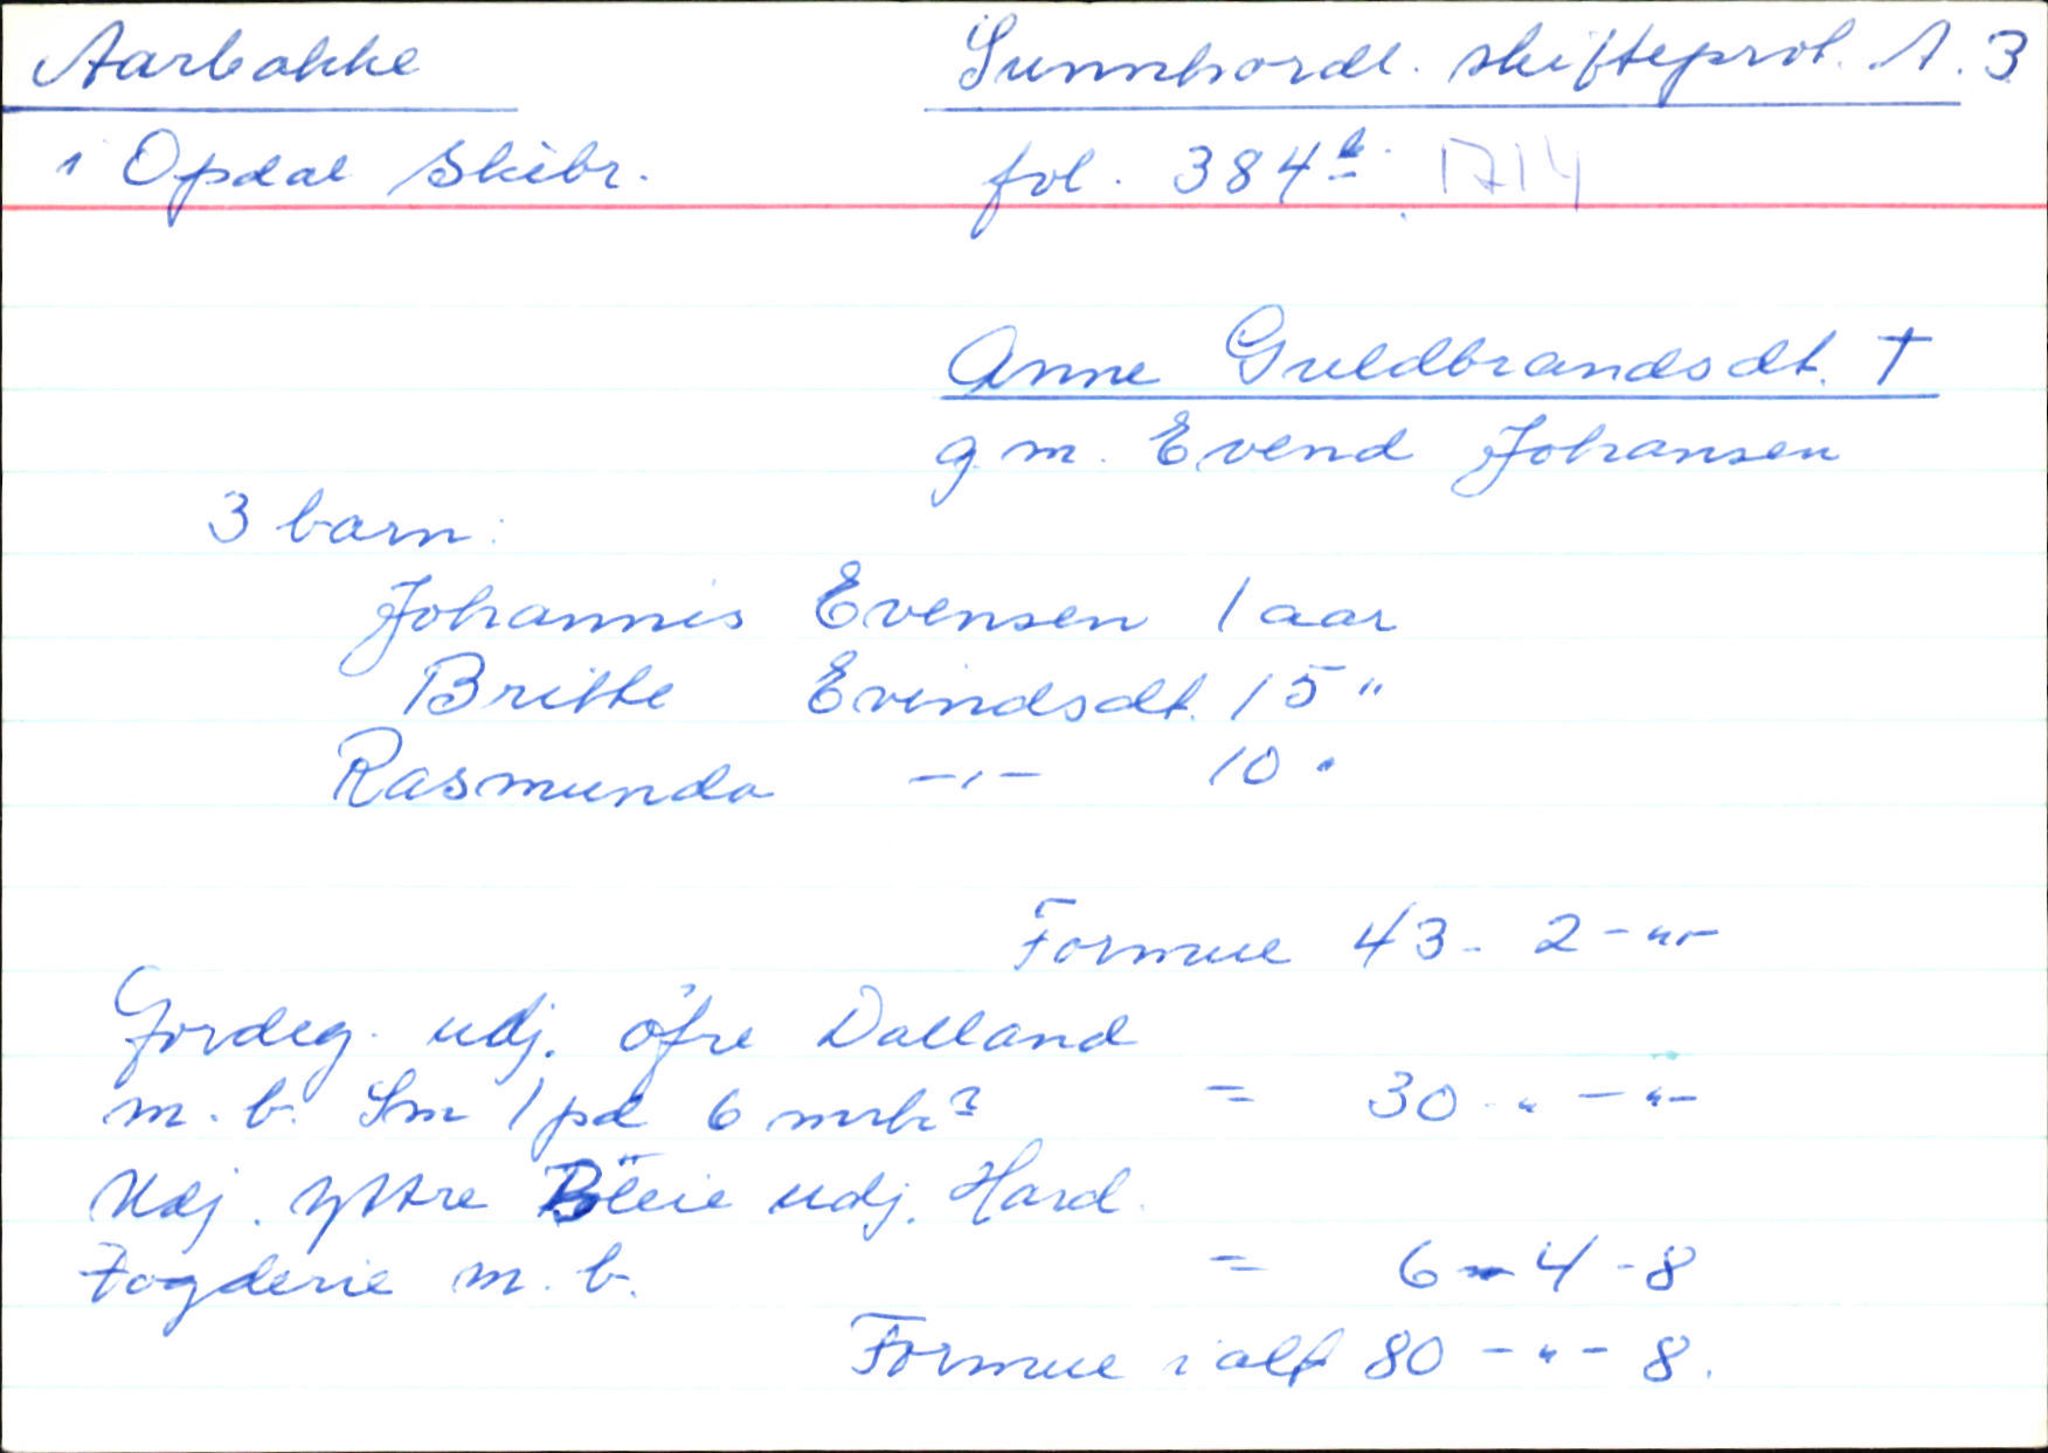 Aarbakke Sunnhordl. skifteprot. A. 3
i Opdal Skibr. fol. 384 b. 1714
Anne Guldbrandsdt. †
g. m. Evend Johansen
3 barn:
Johannis Evensen 1 aar
Britte Evindsdt. 15 "
Rasmunda -"- 10 "
Formue 43 - 2 - " -
Jordeg. udj. öfre Dalland
m. b. Sm 1 pd 6 mrk? = 30 - " - " -
Udj. yttre Bleie udj. Hard.
Fogderie m. b. = 6 - 4 - 8
Formue i alt 80 - " - 8.